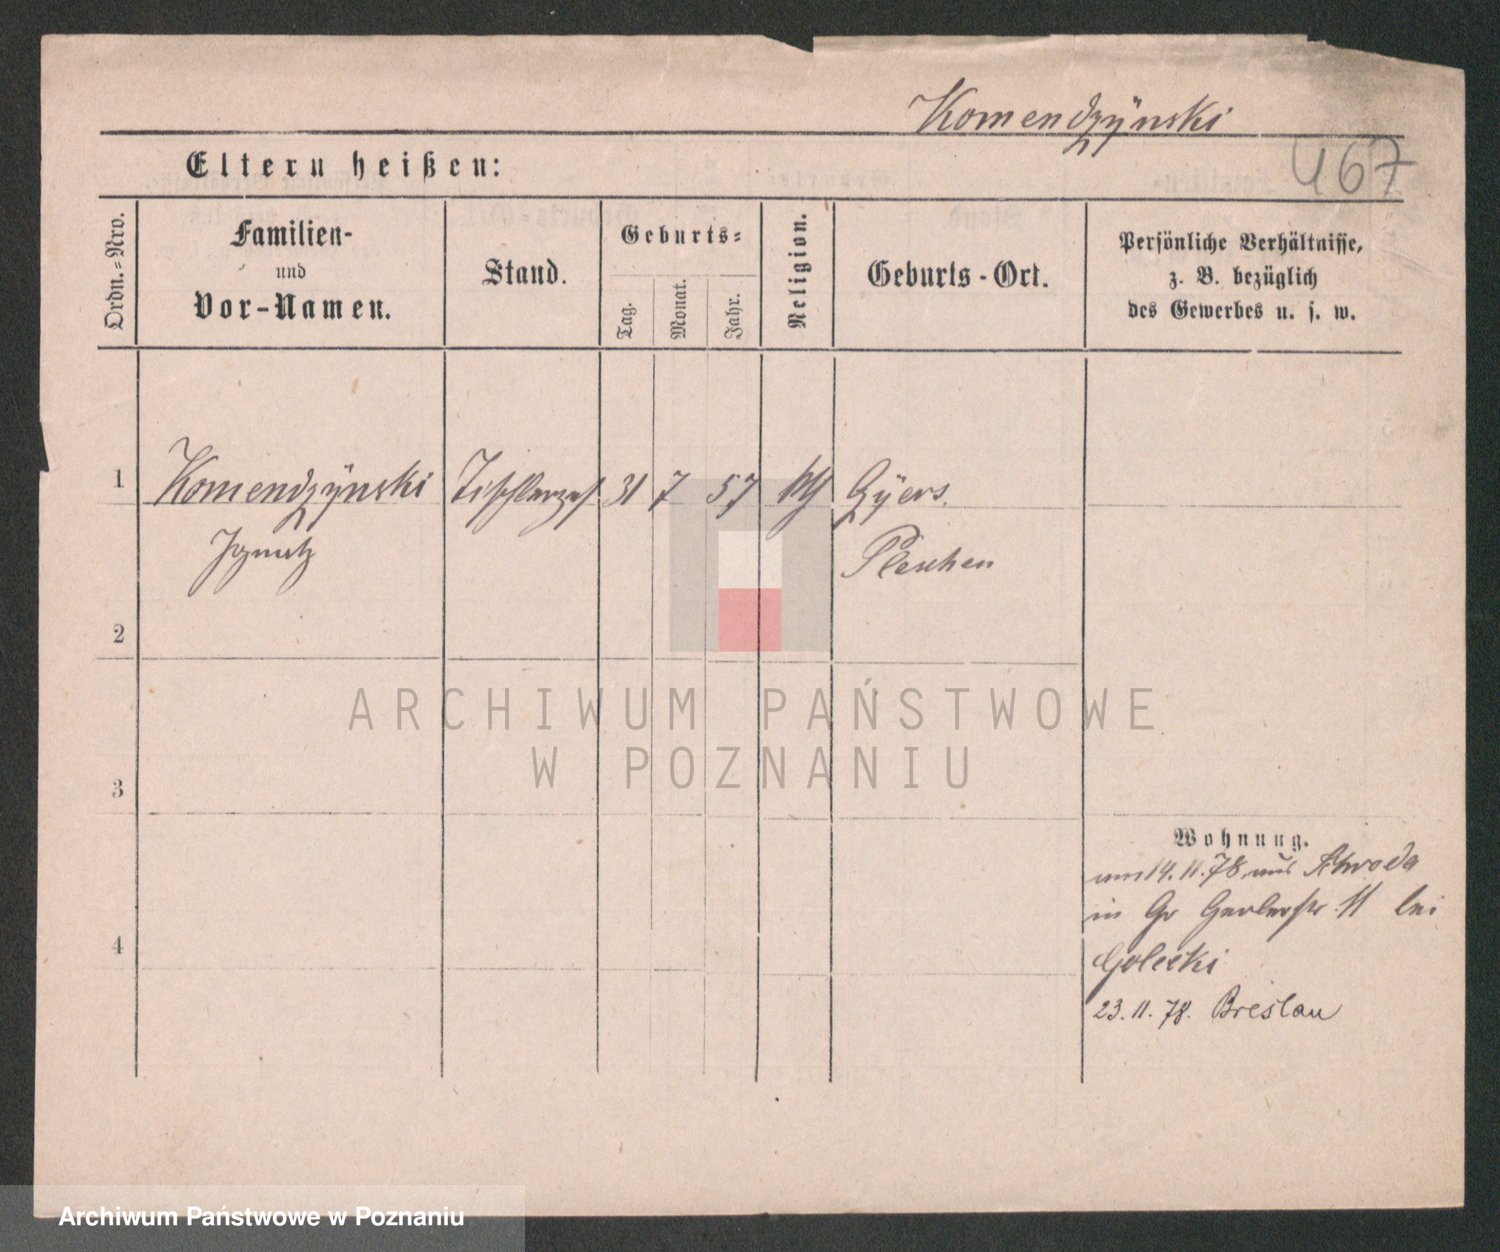 Komendzÿnski
467
Eltern heißen:
Ordn.-Nro.
Familien-
und
Vor-Namen.
Stand.
Geburts-
Tag.
Monat.
Jahr.
Religion.
Geburts-Ort.
Persönliche Verhältnisse,
z. B. bezüglich
des Gewerbes u. s. w.
1 Komendzÿnski Tischlerges 31 7 57 kth
Ignatz Pleschen
2
3
4
Wohnung.
am 14.11.78 aus
in Gr Gerberstr. 11 bei
Golecki
23.11.78. Breslau
ARCHIWUM PAŃSTWOWE
W POZNANIU
Archiwum Państwowe w Poznaniu